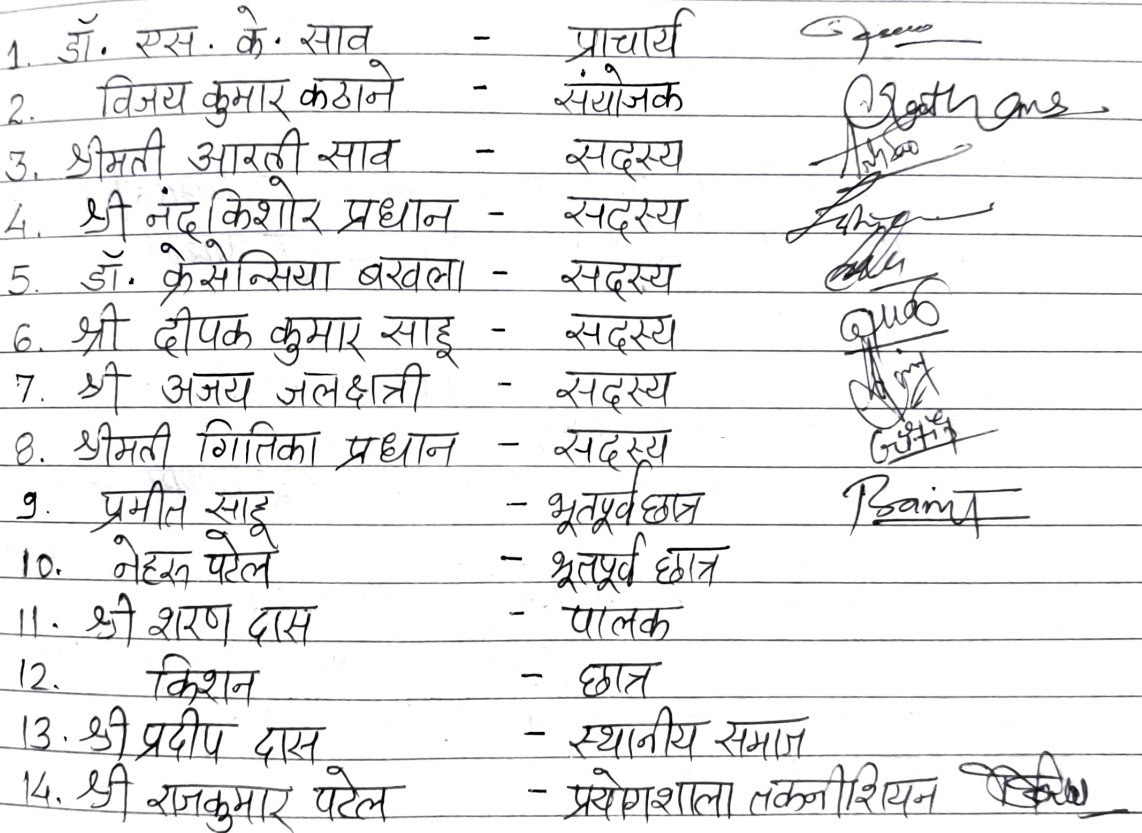 1. डॉ. एस. के. साव - प्राचार्य
2. विजय कुमार कठाने - संयोजक
3. श्रीमती आरती साव - सदस्य
4. श्री नंदकिशोर प्रधान - सदस्य
5. डॉ. क्रेसेन्सिया बखला - सदस्य
6. श्री दीपक कुमार साहू - सदस्य
7. श्री अजय जलक्षत्री - सदस्य
8. श्रीमती गितिका प्रधान - सदस्य
9. प्रमीत साहू - भूतपूर्व छात्र
10. नेहरू पटेल - भूतपूर्व छात्र
11. श्री शरण दास - पालक
12. किशन - छात्र
13. श्री प्रदीप दास - स्थानीय समाज
14. श्री राजकुमार पटेल - प्रयोगशाला तकनीशियन